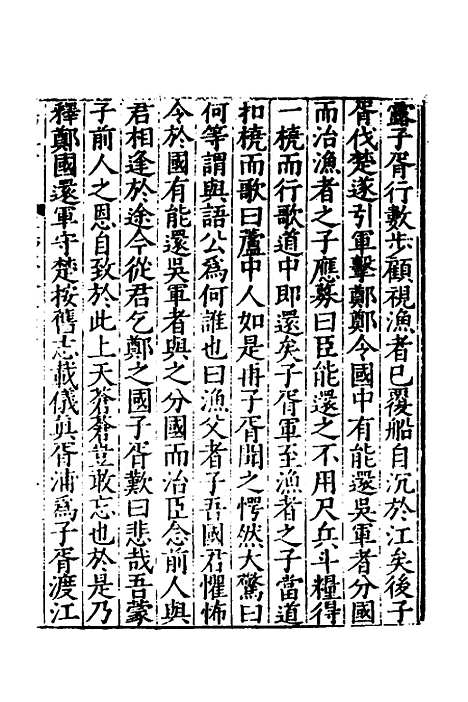 露子胥行數步顧視漁者已覆船自沉於江矣後子
胥伐楚遂引軍擊鄭鄭令國中有能還吳軍者分國
而治漁者之子應募曰臣能還之不用尺兵斗糧得
一橈而行歌道中即還矣子胥軍至漁者之子當道
扣橈而歌曰蘆中人如是再子胥聞之愕然大驚曰
何等謂與語公爲何誰也曰漁父者子吾國君懼怖
令於國有能還吳軍者與之分國而治臣念前人與
君相逢於途今從君乞鄭之國子胥歎曰悲哉吾蒙
子前人之恩自致於此上天蒼蒼豈敢忘也於是乃
釋鄭國還軍守楚按舊志載儀真胥浦爲子胥渡江